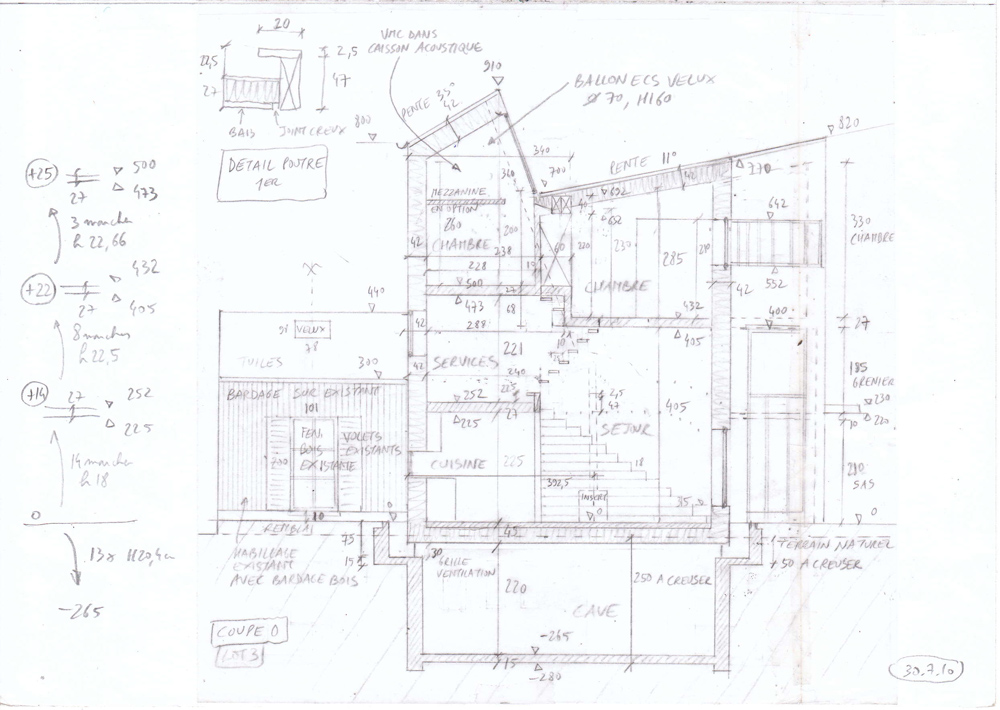 20
2,5
22,5
27
47
BAIS
JOINT CREUX
DETAIL POUTRE
1ER
VMC DANS
CAISSON ACOUSTIQUE
910
BALLON ECS VELUX
ø 70, H160
PENTE 35°
42
800
820
340
PENTE 11°
700
770
360
42
692
40
652
642
MEZZANINE
EN OPTION
260
200
CHAMBRE
238
228
42
60
220
230
285
210
CHAMBRE
552
42
330
CHAMBRE
+25
500
473
27
3 marches
h 22,66
+22
432
405
27
8 marches
h 22,5
+14
27
252
225
14 marches
h 18
0
13 x H20,4 cm
-265
440
91
VELUX
78
TUILES
300
500
473
27
68
288
42
432
405
400
27
SERVICES
221
240
42
252
225
27
2,5
47
405
SEJOUR
185
GRENIER
230
220
10
BARDAGE SUR EXISTANT
101
FEN.
BOIS
EXISTANTE
VOLETS
EXISTANTS
200
10
CUISINE
225
392,5
18
INSERT
0
210
SAS
0
REMBLAI
75
15
HABILLAGE
EXISTANT
AVEC BARDAGE BOIS
45
30
GRILLE
VENTILATION
220
250 A CREUSER
TERRAIN NATUREL
+50 A CREUSER
CAVE
-265
15
-280
COUPE D
LOT 3
30.7.10